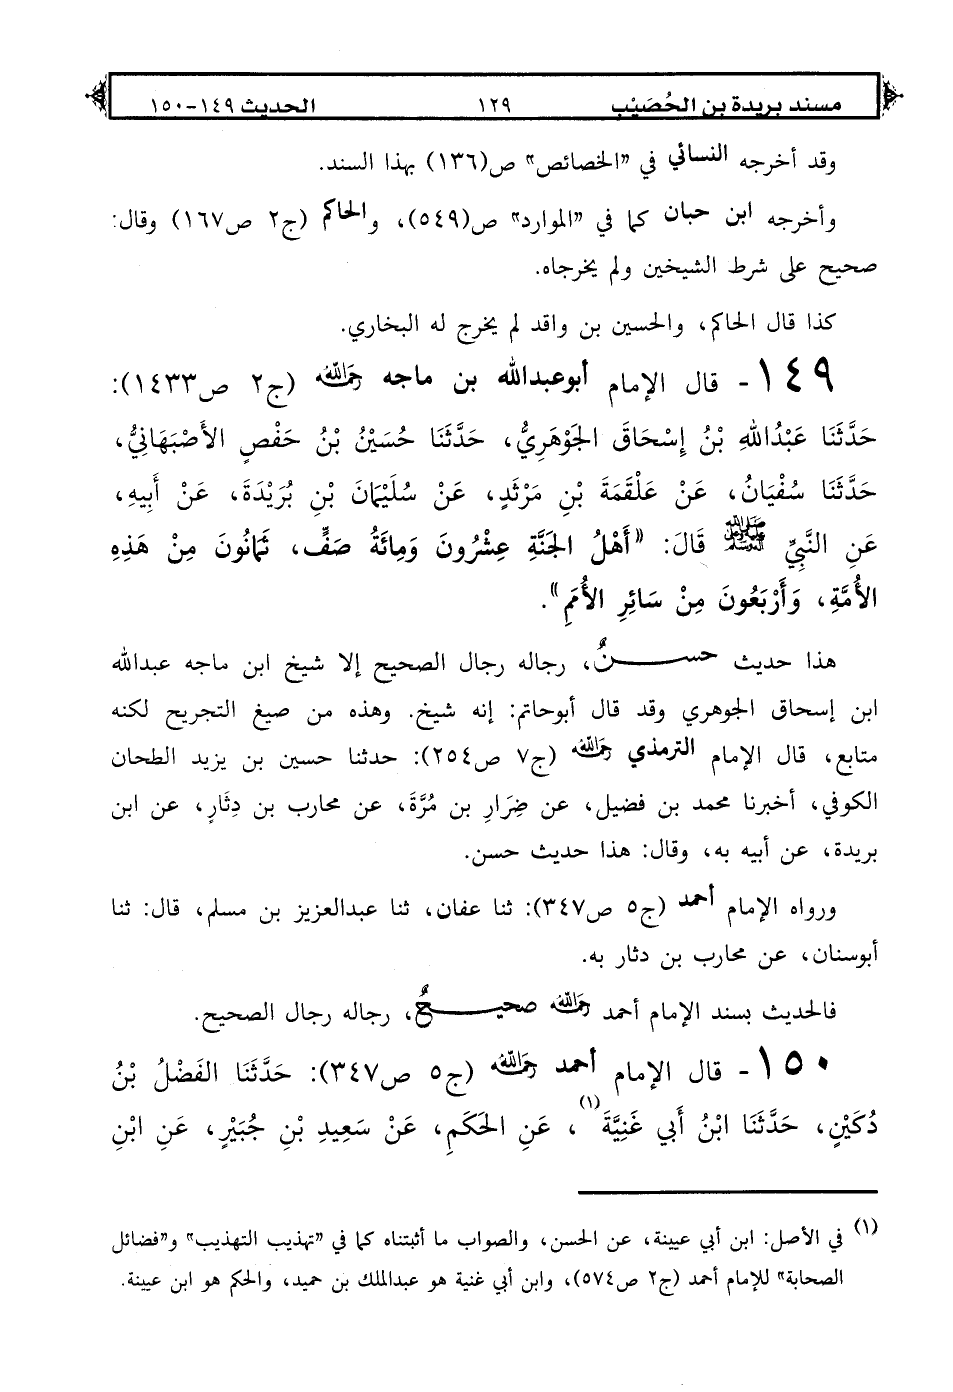 مسند بريدة بن الحُصَيْب ١٢٩ الحديث ١٤٩-١٥٠
وقد أخرجه النسائي في «الخصائص» ص(١٣٦) بهذا السند.
وأخرجه ابن حبان كما في «الموارد» ص(٥٤٩)، والحاكم (ج٢ ص١٦٧) وقال:
صحيح على شرط الشيخين ولم يخرجاه.
كذا قال الحاكم، والحسين بن واقد لم يخرج له البخاري.
١٤٩ - قال الإمام أبوعبدالله بن ماجه رحمه الله (ج٢ ص١٤٣٣):
حَدَّثَنَا عَبْدُاللهِ بْنُ إِسْحَاقَ الجَوْهَرِيُّ، حَدَّثَنَا حُسَيْنُ بْنُ حَفْصٍ الأَصْبَهَانِيُّ،
حَدَّثَنَا سُفْيَانُ، عَنْ عَلْقَمَةَ بْنِ مَرْثَدٍ، عَنْ سُلَيْمَانَ بْنِ بُرَيْدَةَ، عَنْ أَبِيهِ،
عَنِ النَّبِيِّ ﷺ قَالَ: «أَهْلُ الجَنَّةِ عِشْرُونَ وَمِائَةُ صَفٍّ، ثَمَانُونَ مِنْ هَذِهِ
الأُمَّةِ، وَأَرْبَعُونَ مِنْ سَائِرِ الأُمَمِ».
هذا حديث حسنٌ، رجاله رجال الصحيح إلا شيخ ابن ماجه عبدالله
ابن إسحاق الجوهري وقد قال أبوحاتم: إنه شيخ. وهذه من صيغ التجريح لكنه
متابع، قال الإمام الترمذي رحمه الله (ج٧ ص٢٥٤): حدثنا حسين بن يزيد الطحان
الكوفي، أخبرنا محمد بن فضيل، عن ضِرَارِ بن مُرَّةَ، عن محارب بن دِثَارٍ، عن ابن
بريدة، عن أبيه به، وقال: هذا حديث حسن.
ورواه الإمام أحمد (ج٥ ص٣٤٧): ثنا عفان، ثنا عبدالعزيز بن مسلم، قال: ثنا
أبوسنان، عن محارب بن دثار به.
فالحديث بسند الإمام أحمد رحمه الله صحيحٌ، رجاله رجال الصحيح.
١٥٠ - قال الإمام أحمد رحمه الله (ج٥ ص٣٤٧): حَدَّثَنَا الفَضْلُ بْنُ
دُكَيْنٍ، حَدَّثَنَا ابْنُ أَبِي غَنِيَّةَ(١)، عَنِ الحَكَمِ، عَنْ سَعِيدِ بْنِ جُبَيْرٍ، عَنِ ابْنِ
(١) في الأصل: ابن أبي عيينة، عن الحسن، والصواب ما أثبتناه كما في «تهذيب التهذيب» و«فضائل
الصحابة» للإمام أحمد (ج٢ ص٥٧٤)، وابن أبي غنية هو عبدالملك بن حميد، والحكم هو ابن عيينة.